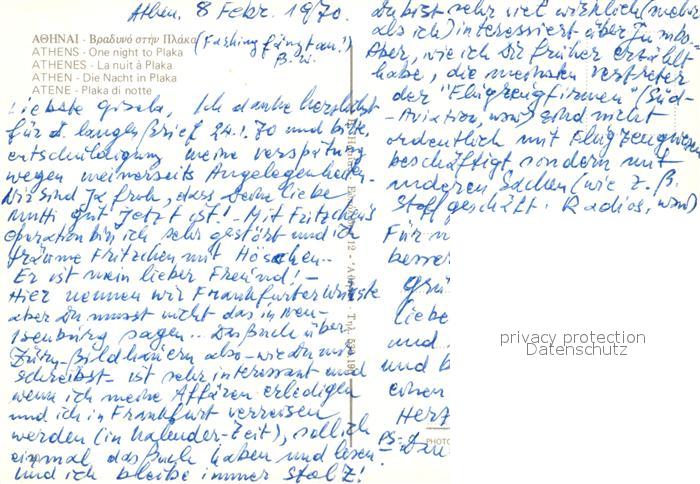 Athen, 8 Febr. 1970.
(Fasching fängt an!)
ΑΘΗΝΑΙ - Βραδυνό στήν Πλάκα
ATHENS - One night to Plaka
ATHENES - La nuit à Plaka
ATHEN - Die Nacht in Plaka
ATENE - Plaka di notte
Liebste Gisela, Ich danke herzlichst
für d. langen Brief 24.1.70 und bitte,
entschuldigung meine verspätung
wegen meinerseits Angelegenheiten.
Wir sind Ja froh, dass Deine liebe
mutti gut Jetzt ist! - Mit Fritzchen's
operation bin ich sehr gestört und ich
träume Fritzchen mit Höschen..
Er ist mein lieber Freund! -
Hier nennen wir Frankfurter Würste
aber Du musst nicht das in Neu-
Isenburg sagen... Das Buch über
Bildhauern also - wie Du mir
schreibst - ist sehr interessant und
wenn ich meine Affären erledigen
und ich in Frankfurt verreisen
werden (in Kalender-Zeit), soll ich
einmal das Buch haben und lesen
und ich bleibe immer stolz!
Du bist sehr viel wirklich (mehr
als ich) interessiert über Jumbo-
Aber, wie ich Dir früher erzählt
habe, die meisten vertreter
der "Flugzeugfirmen" (Süd-
-Aviation, usw) sind nicht
ordentlich mit Flugzeugen
beschäftigt sondern mit
anderen Sachen (wie z. B.
Stoffgeschäft. Radios, usw)
Für
besser
grü
liebe
und
und b
einen
Herz
PS:
PHOTO
privacy protection
Datenschutz